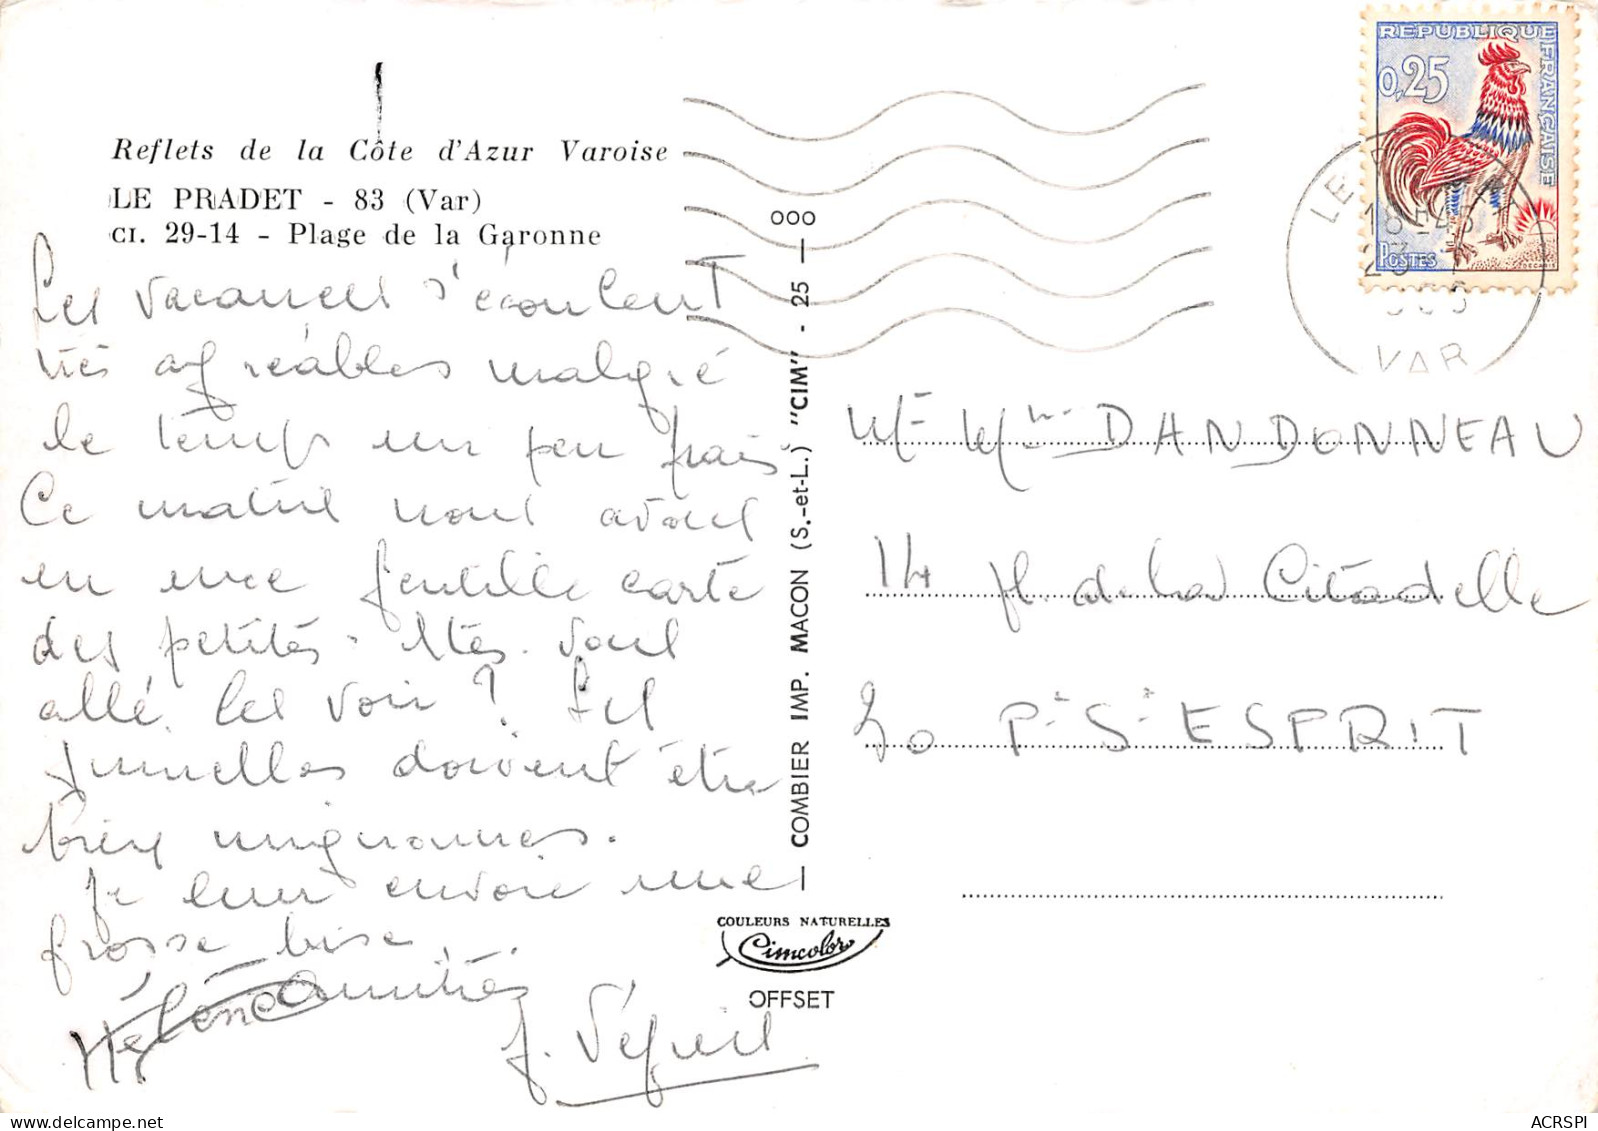 Reflets de la Côte d'Azur Varoise
LE PRADET - 83 (Var)
CI. 29-14 - Plage de la Garonne
Les vacances s'écoulent
très agréables malgré
le temps un peu frais
Ce matin nous avons
eu une gentille carte
des petites. Etes. vous
allé les voir ? Les
jumelles doivent être
bien mignonnes.
Je leur envoie une
grosse bise.
Amitiés
Hélène
COMBIER IMP. MACON (S.-et-L.) "CIM" - 25 -
000
COULEURS NATURELLES
Cimcolor
OFFSET
REPUBLIQUE FRANÇAISE
0,25
POSTES
LE
18 H 45
23
VAR
Mr Mme DANDONNEAU
14 pl. de la Citadelle
30 Pt St ESPRIT
ACRSPI